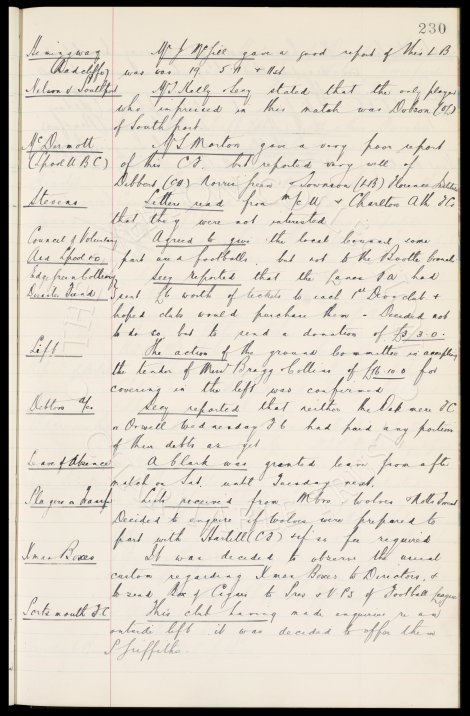 230
Hemingway Mr J McGill gave a good report of this L B
(Radcliffe) was 19 5.9 & 11st
Nelson v Southport Mr T Kelly Secy stated that the only player
who impressed in this match was Dobson (OL)
of Southport
McDermott Mr L Morton gave a very poor report
(Lpool A B C) of this C F but reported very well of
Dobbert (CH) Norris Green & Townson (LB) Florence
Stevens Letters read from & Charlton Ath FCs
that they were not interested
Council of Voluntary Agreed to give the local council some
Aid Lpool no part used footballs, but not to the Bootle branch
Lodge from Colliery Secy reported that the Lancs F A had
Disaster Fund sent £6 worth of tickets to each 1st Divn club &
hoped clubs would purchase them - Decided not
to do so, but to send a donation of £3/3-0.
Lift The action of the ground Committee in accepting
the tender of Messrs Bragg Collins of £16 10 0 for
covering in the lift was confirmed
Debtors a/cs Secy reported that neither the FC
or Orwell Wednesday FC had paid any portion
of their debts as yet
Leave of Absence A Clark was granted leave from after
match on Sat. until Tuesday next.
Players on Transfer Lists received from M'bro, Wolves & Notts Forest
Decided to enquire if Wolves were prepared to
part with Hartill (CF) & if so fee required
Xmas Boxes It was decided to observe the usual
custom regarding Xmas Boxes to Directors, &
to send Box of Cigars to Pres & V Ps of Football League
Portsmouth F C This club having made enquiries re an
outside left it was decided to offer them
Griffiths.